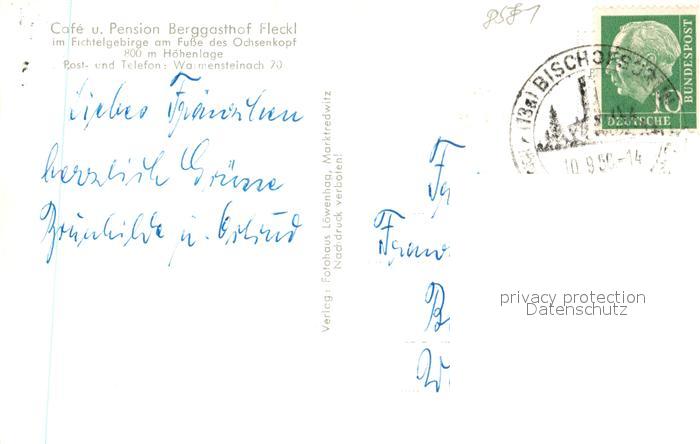 Café u. Pension Berggasthof Fleckl
im Fichtelgebirge am Fuße des Ochsenkopf
800 m Höhenlage
Post- und Telefon: Warmensteinach 20
9581
(13a) BISCHOFSGR
10.9.56-14
BUNDESPOST
10
DEUTSCHE
Liebes Fränzchen
herzlich Grüsse
Brunhilde u.
Verlag: Fotohaus Löwenhag, Marktredwitz
Nachdruck verboten!
Fr
Franz
B
W
privacy protection
Datenschutz